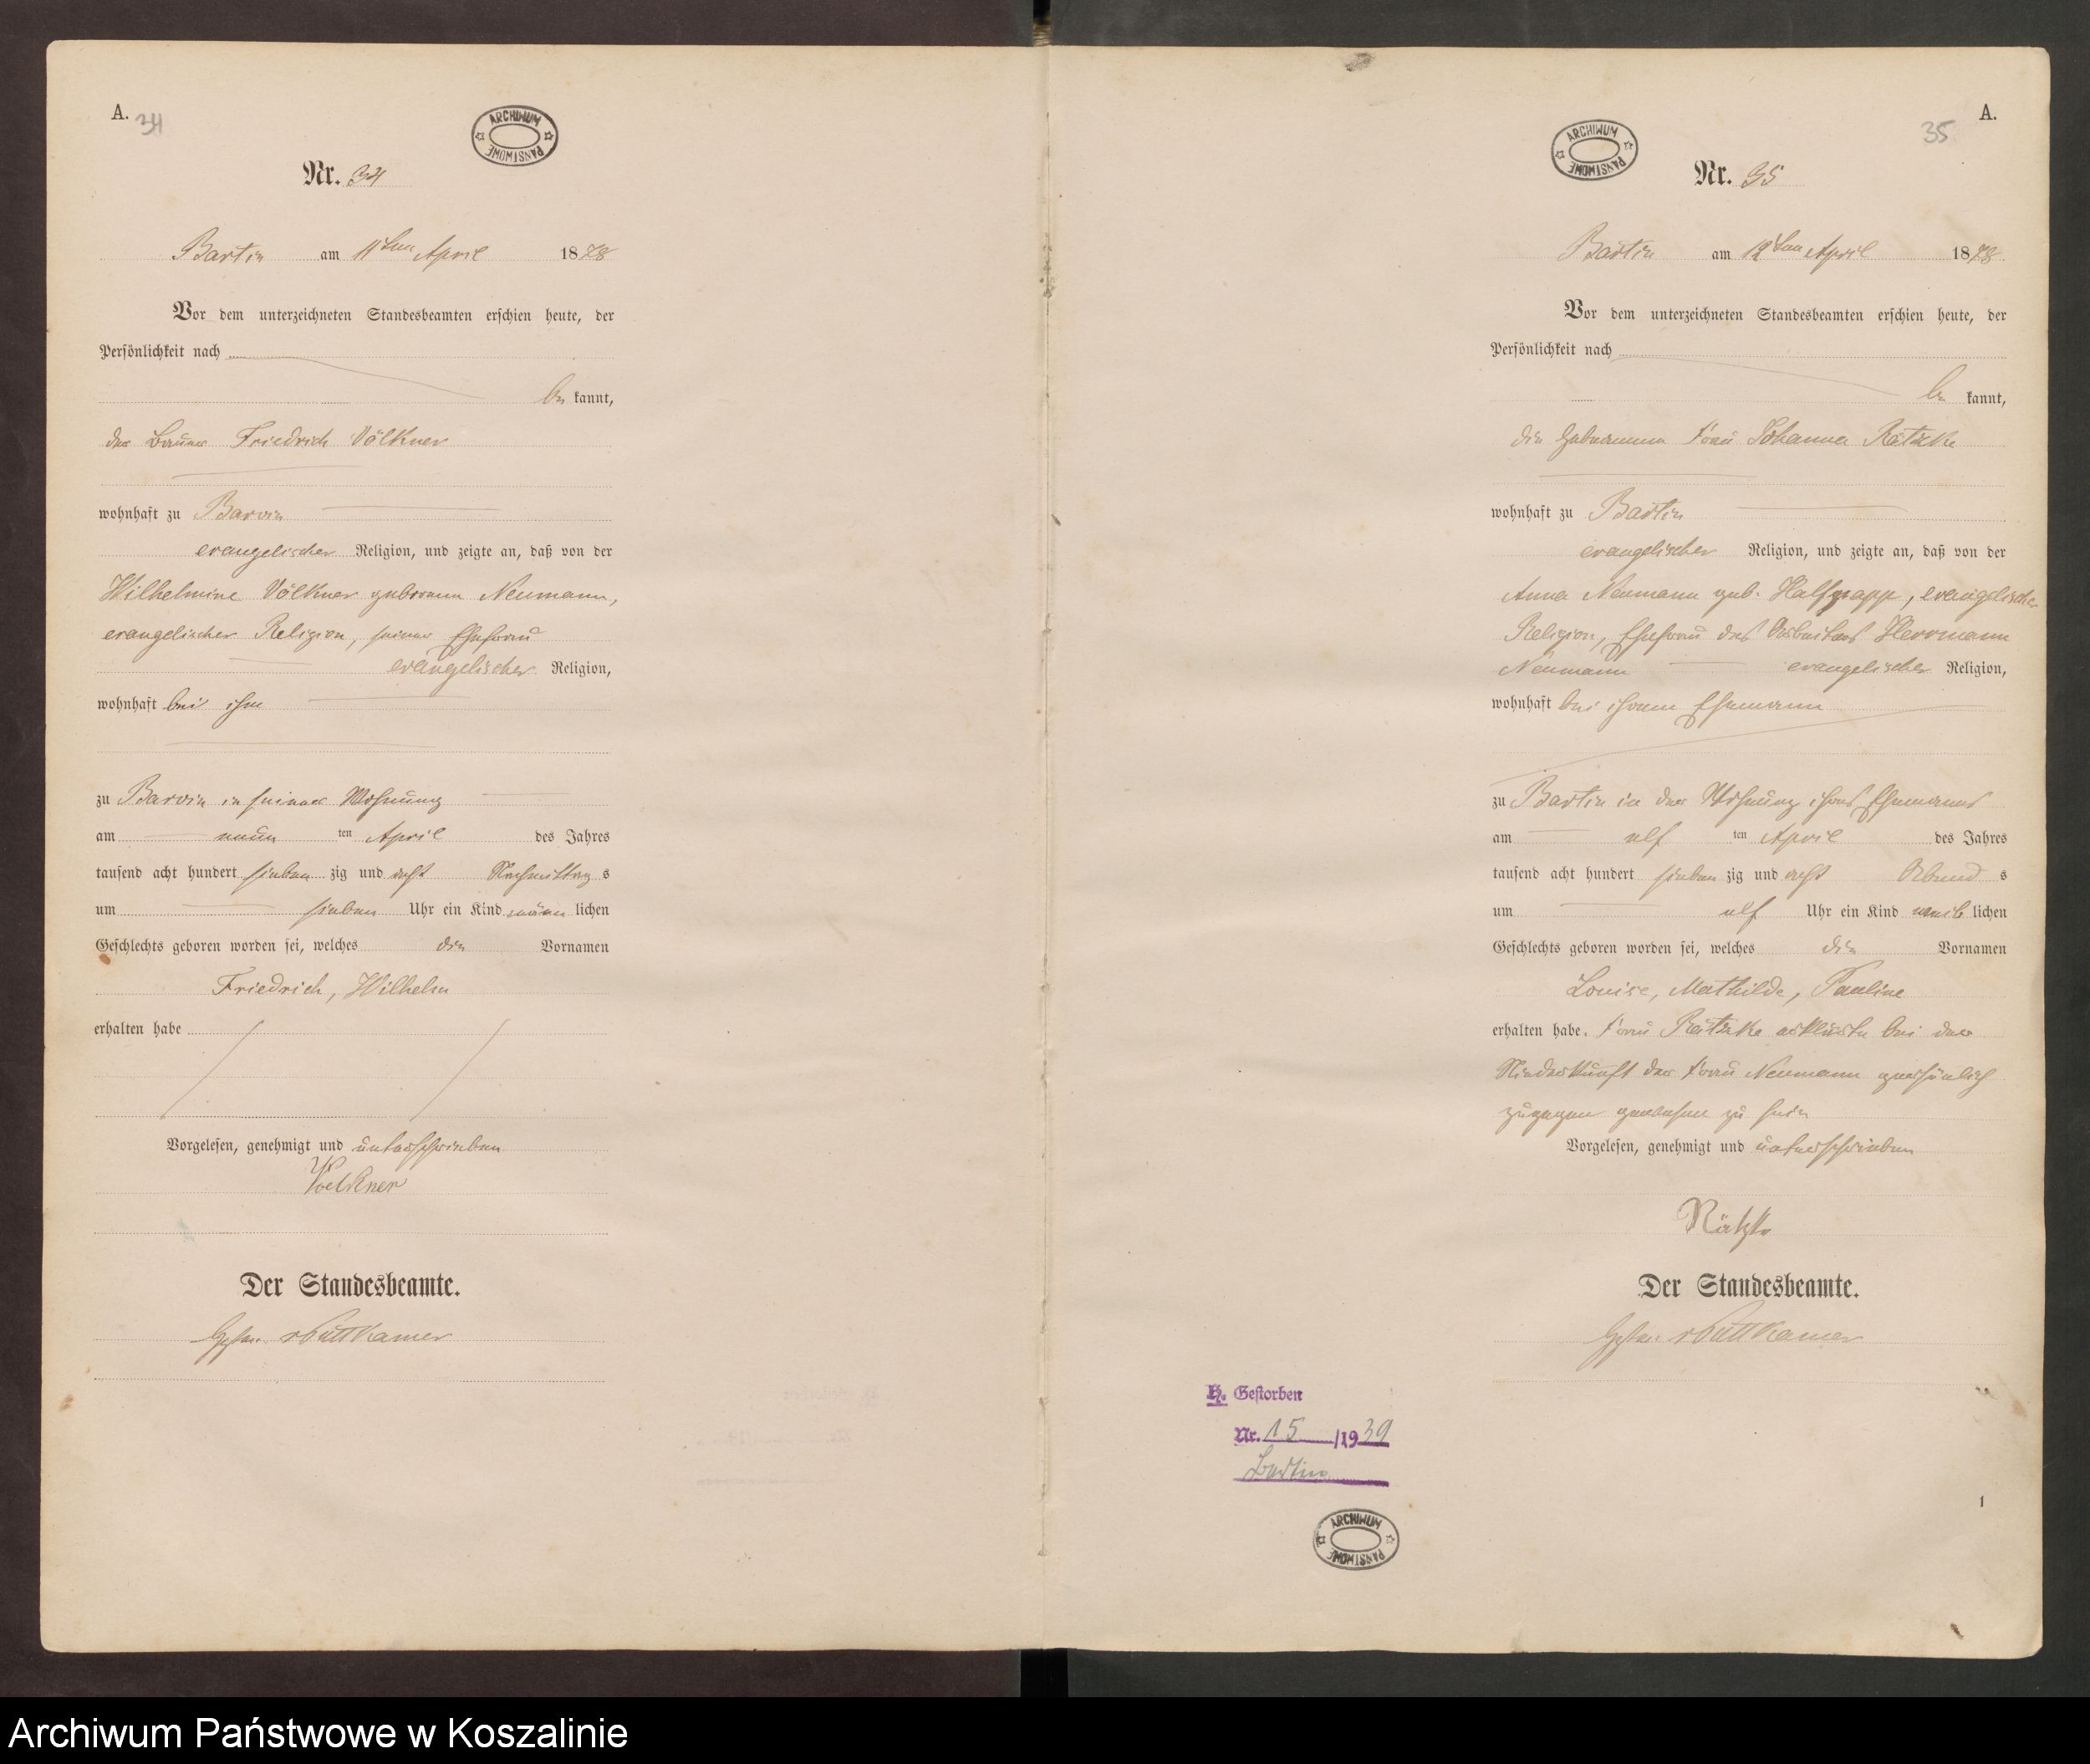 A. 34
ARCHIWUM PAŃSTWOWE
Nr. 34
Bartin am 11ten April 1878
Vor dem unterzeichneten Standesbeamten erschien heute, der
Persönlichkeit nach
be kannt,
der Bauer Friedrich Völkner
wohnhaft zu Barvin
evangelischer Religion, und zeigte an, daß von der
Wilhelmine Völkner geborenen Neumann,
evangelischer Religion, seiner Ehefrau
evangelischer Religion,
wohnhaft bei ihm
zu Barvin in seiner Wohnung
am neun ten April des Jahres
tausend acht hundert sieben zig und acht Nachmittag s
um sieben Uhr ein Kind männ lichen
Geschlechts geboren worden sei, welches die Vornamen
Friedrich, Wilhelm
erhalten habe
Vorgelesen, genehmigt und unterschrieben
Voelkner
Der Standesbeamte.
vPuttkamer
A.
35
ARCHIWUM PAŃSTWOWE
Nr. 35
Bartin am 12ten April 1878
Vor dem unterzeichneten Standesbeamten erschien heute, der
Persönlichkeit nach
be kannt,
die Hebamme Frau Johanna Rätzke
wohnhaft zu Bartin
evangelischer Religion, und zeigte an, daß von der
Anna Neumann geb. Halfpapp, evangelischer
Religion, Ehefrau des Arbeiters Herrmann
Neumann evangelischer Religion,
wohnhaft bei ihrem Ehemann
zu Bartin in der Wohnung ihres Ehemannes
am elf ten April des Jahres
tausend acht hundert sieben zig und acht Abend s
um elf Uhr ein Kind weib lichen
Geschlechts geboren worden sei, welches die Vornamen
Louise, Mathilde, Pauline
erhalten habe. Frau Rätzke erklärte bei der
Niederkunft der Frau Neumann persönlich
zugegen gewesen zu sein
Vorgelesen, genehmigt und unterschrieben
Rätzke
Der Standesbeamte.
vPuttkamer
H. Gestorben
Nr. 15 /1939
Bartin
ARCHIWUM PAŃSTWOWE
1
Archiwum Państwowe w Koszalinie